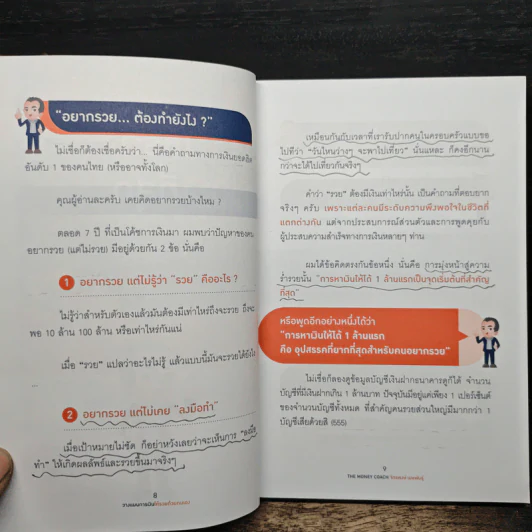 "อยากรวย... ต้องทำยังไง ?"
ไม่เชื่อก็ต้องเชื่อครับว่า... นี่คือคำถามทางการเงินยอดฮิต
อันดับ 1 ของคนไทย (หรืออาจทั้งโลก)
คุณผู้อ่านละครับ เคยคิดอยากรวยบ้างไหม ?
ตลอด 7 ปี ที่เป็นโค้ชการเงินมา ผมพบว่าปัญหาของคน
อยากรวย (แต่ไม่รวย) มีอยู่ด้วยกัน 2 ข้อ นั่นคือ
1 อยากรวย แต่ไม่รู้ว่า "รวย" คืออะไร ?
ไม่รู้ว่าสำหรับตัวเองแล้วมันต้องมีเท่าไหร่ถึงจะรวย ถึงจะ
พอ 10 ล้าน 100 ล้าน หรือเท่าไหร่กันแน่
เมื่อ "รวย" แปลว่าอะไรไม่รู้ แล้วแบบนี้มันจะรวยได้ยังไง
2 อยากรวย แต่ไม่เคย "ลงมือทำ"
เมื่อเป้าหมายไม่ชัด ก็อย่าหวังเลยว่าจะเห็นการ "ลงมือ
ทำ" ให้เกิดผลลัพธ์และรวยขึ้นมาจริงๆ
8
เหมือนกันกับเวลาที่เรารับปากคนในครอบครัวแบบขอ
ไปทีว่า "วันไหนว่างๆ จะพาไปเที่ยว" นั่นแหละ ก็คงอีกนาน
กว่าจะได้ไปเที่ยวกันจริงๆ
คำว่า "รวย" ต้องมีเงินเท่าไหร่นั้น เป็นคำถามที่ตอบยาก
จริงๆ ครับ เพราะแต่ละคนมีระดับความพึงพอใจในชีวิตที่
แตกต่างกัน แต่จากประสบการณ์ส่วนตัวและการพูดคุยกับ
ผู้ประสบความสำเร็จทางการเงินหลายๆ ท่าน
ผมได้ข้อคิดตรงกันข้อหนึ่ง นั่นคือ การมุ่งหน้าสู่ความ
ร่ำรวยนั้น "การหาเงินให้ได้ 1 ล้านแรกเป็นจุดเริ่มต้นที่สำคัญ
ที่สุด"
หรือพูดอีกอย่างหนึ่งได้ว่า
"การหาเงินให้ได้ 1 ล้านแรก
คือ อุปสรรคที่ยากที่สุดสำหรับคนอยากรวย"
ไม่เชื่อลองดูข้อมูลบัญชีเงินฝากธนาคารดูก็ได้ จำนวน
บัญชีที่มีเงินฝากเกิน 1 ล้านบาท ปัจจุบันมีอยู่แค่เพียง 1 เปอร์เซ็นต์
ของจำนวนบัญชีทั้งหมด ที่สำคัญคนรวยส่วนใหญ่มีมากกว่า 1
บัญชีเสียด้วยสิ (555)
9
THE MONEY COACH